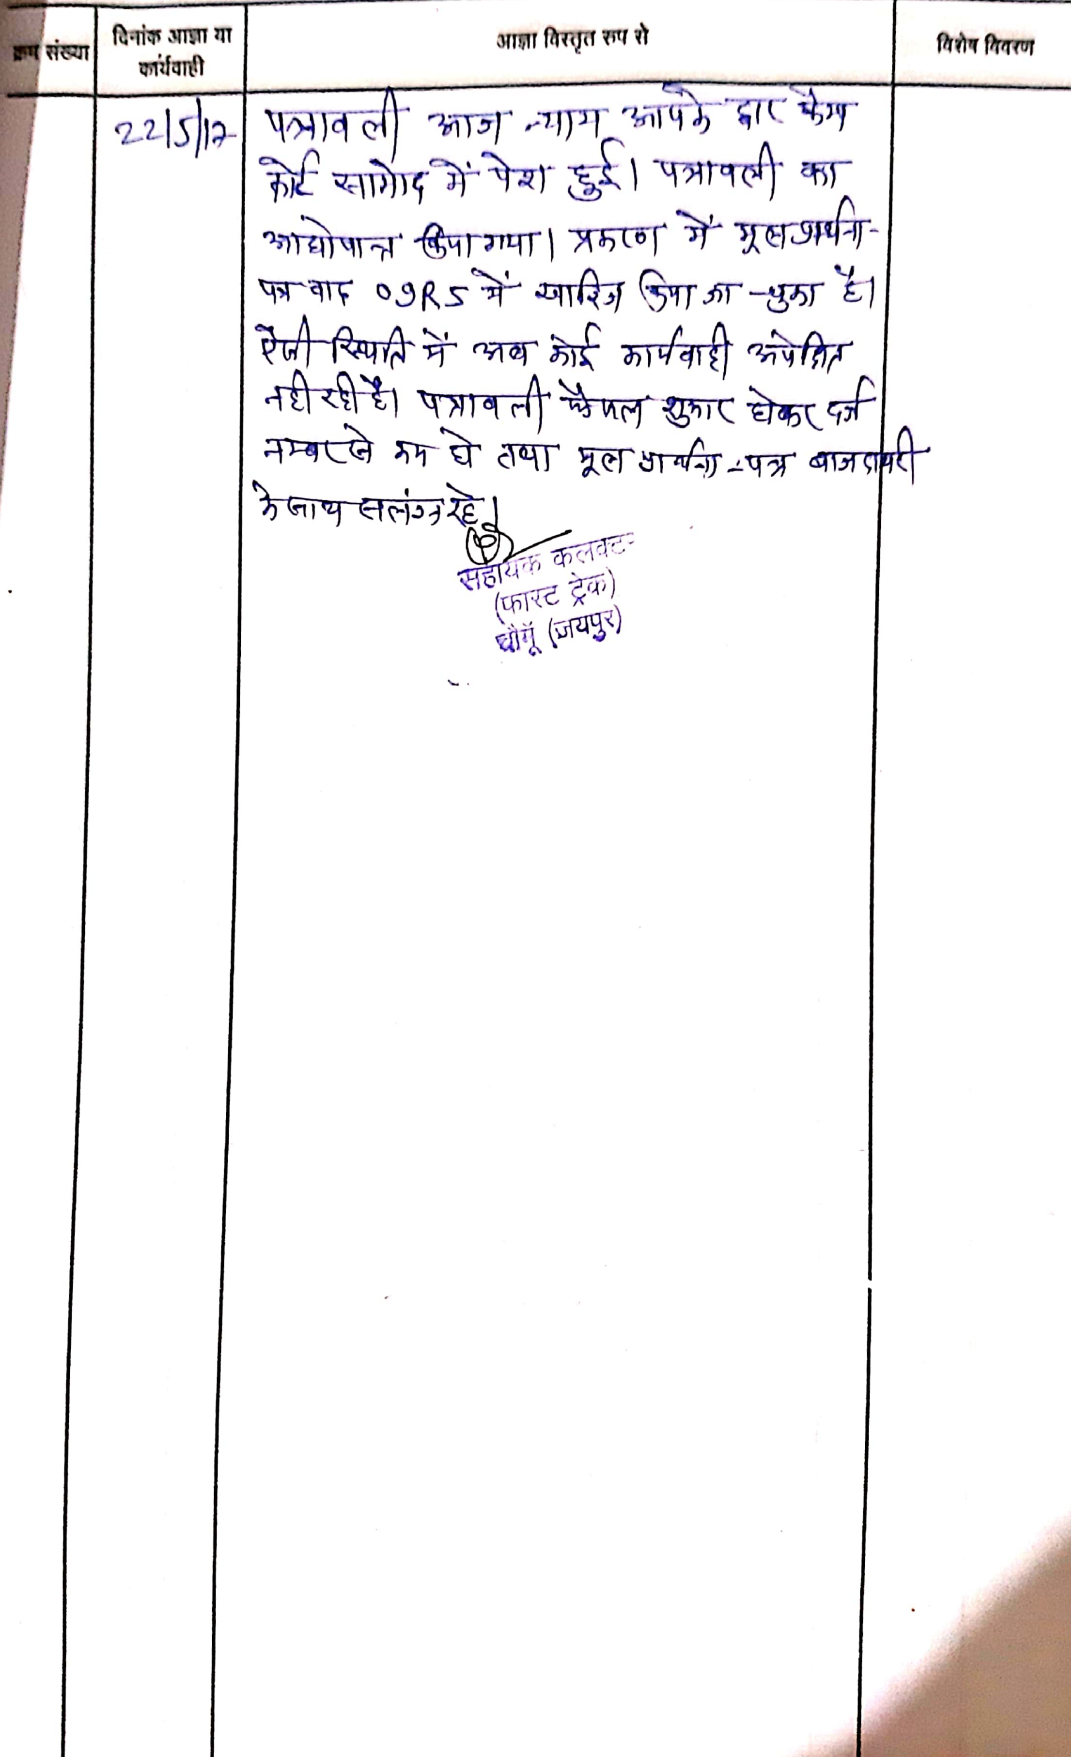 क्रम संख्या
दिनांक आज्ञा या
कार्यवाही
आज्ञा विस्तृत रुप से
विशेष विवरण
22/5/17
पत्रावली आज न्याय आपके द्वार कैम्प
कोर्ट सामोद में पेश हुई। पत्रावली का
आद्योपान्त किया गया। प्रकरण में मूल प्रार्थना-
पत्र वाद 09RS में खारिज किया जा चुका है।
ऐसी स्थिति में अब कोई कार्यवाही अपेक्षित
नही रही है। पत्रावली फैसल शुमार होकर दर्ज
नम्बर से कम हो तथा मूल प्रार्थना-पत्र बाजदायरी
के साथ सलंग्न रहे।
सहायक कलक्टर
(फास्ट ट्रेक)
चौमूँ (जयपुर)